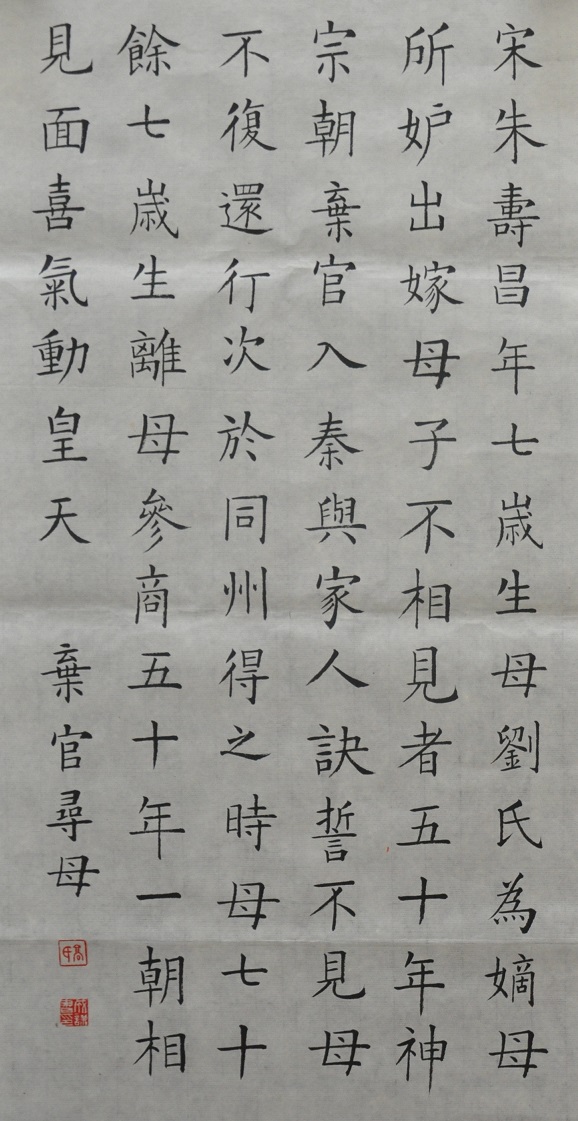 宋朱壽昌年七歲生母劉氏為嫡母
所妒出嫁母子不相見者五十年神
宗朝棄官入秦與家人訣誓不見母
不復還行次於同州得之時母七十
餘七歲生離母參商五十年一朝相
見面喜氣動皇天
棄官尋母